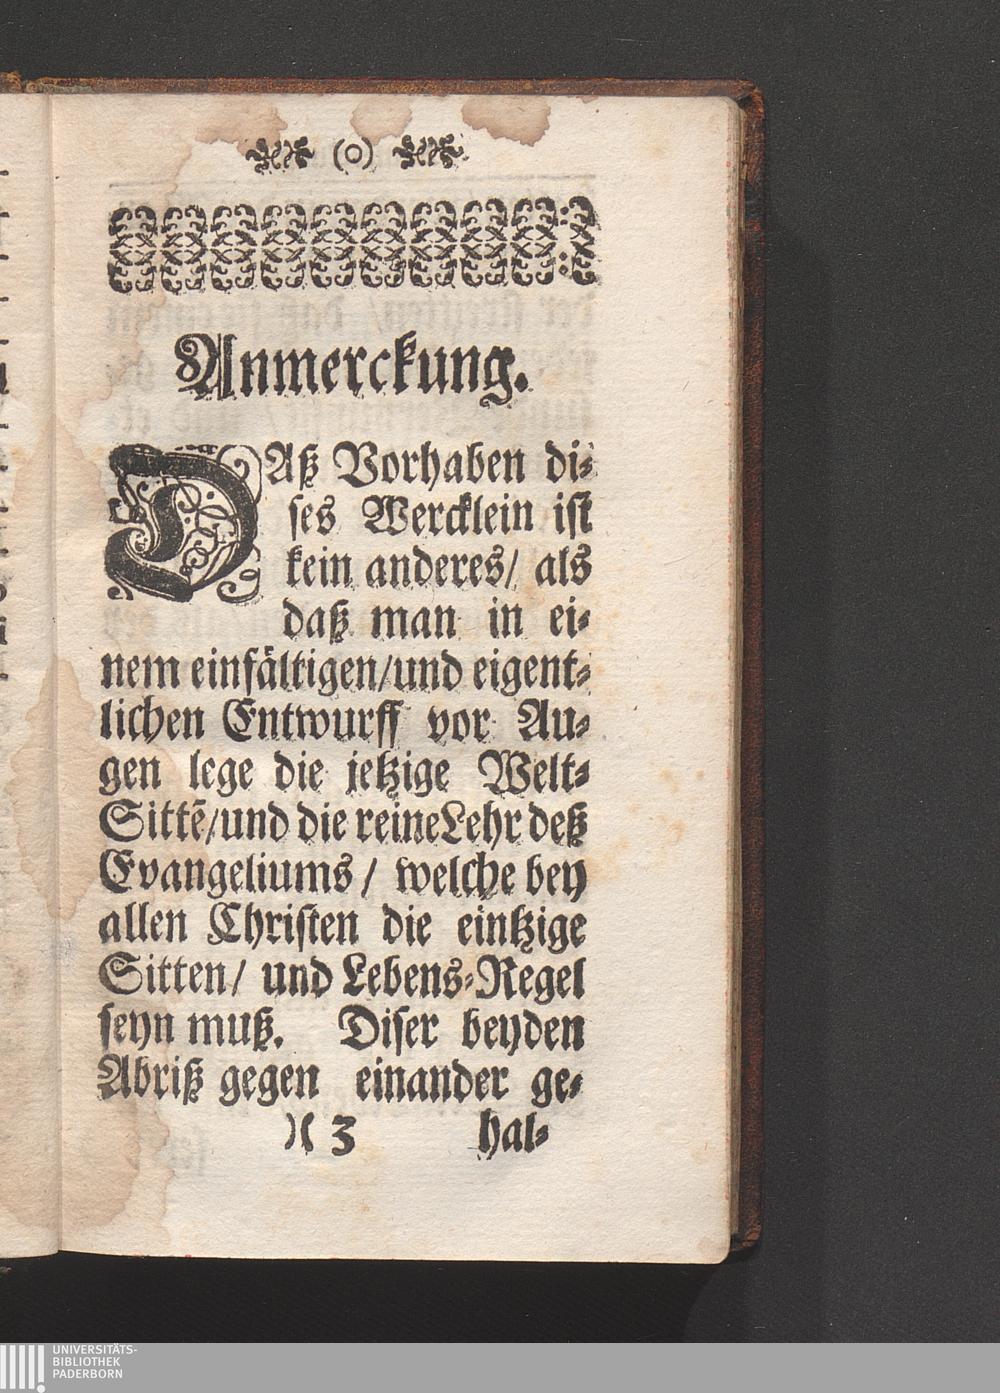 (o)
Anmerckung.
DAß Vorhaben di-
ses Wercklein ist
kein anderes/ als
daß man in ei-
nem einfältigen/und eigent-
lichen Entwurff vor Au-
gen lege die jetzige Welt-
Sittẽ/und die reine Lehr deß
Evangeliums/ welche bey
allen Christen die eintzige
Sitten/ und Lebens-Regel
seyn muß. Diser beyden
Abriß gegen einander ge-
)( 3 hal-
UNIVERSITÄTS-
BIBLIOTHEK
PADERBORN